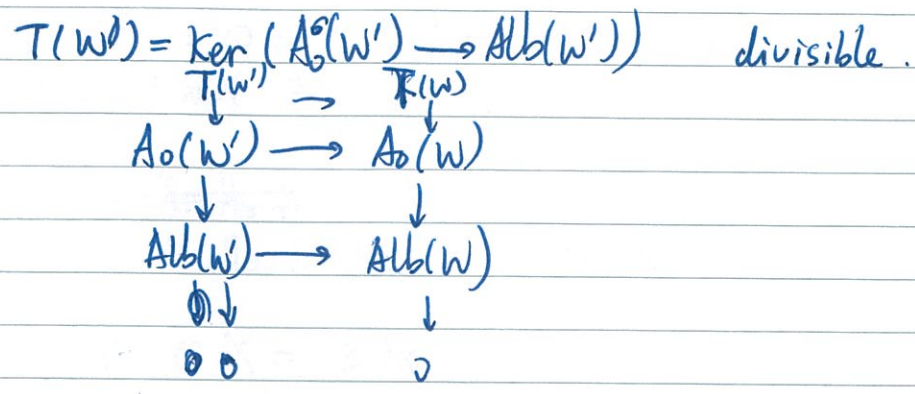 T(W') = Ker (A₀(W') → Alb(W')) divisible.
T(W') → T(W)
↓ ↓
A₀(W') → A₀(W)
↓ ↓
Alb(W') → Alb(W)
↓ ↓
0 0